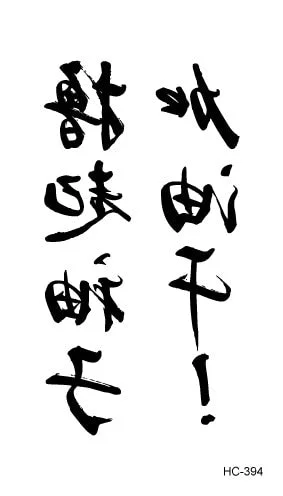 撸起袖子
加油干!
HC-394